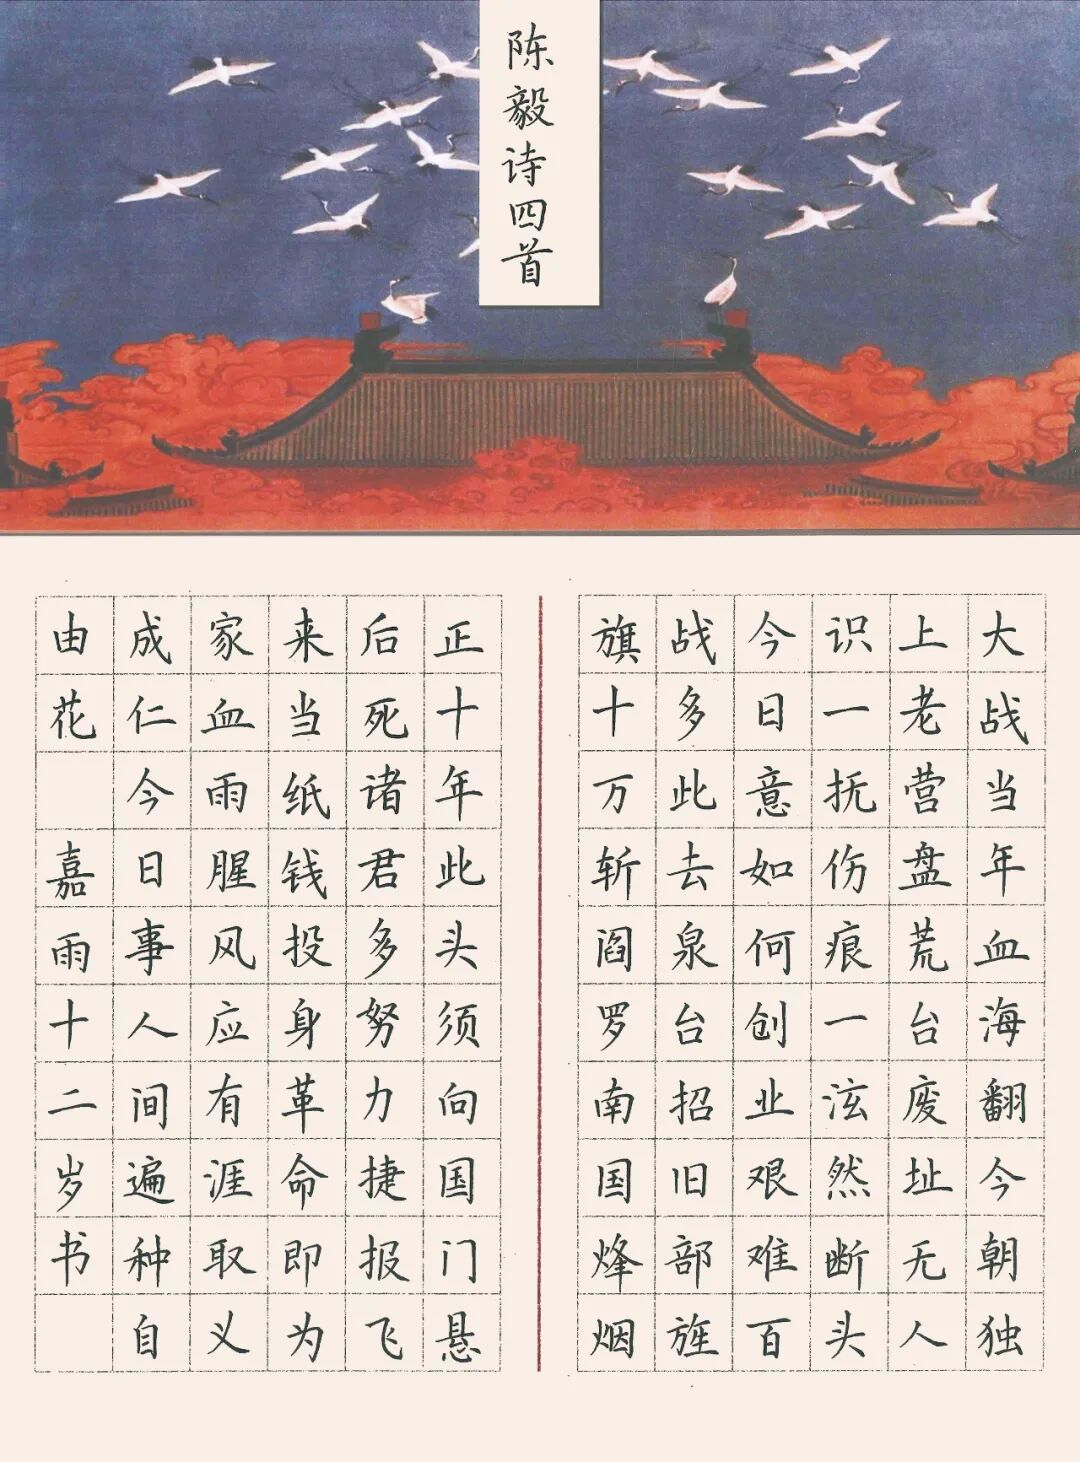 陈毅诗四首
大战当年血海翻今朝独
上老营盘荒台废址无人
识一抚伤痕一泫然断头
今日意如何创业艰难百
战多此去泉台招旧部旌
旗十万斩阎罗南国烽烟
正十年此头须向国门悬
后死诸君多努力捷报飞
来当纸钱投身革命即为
家血雨腥风应有涯取义
成仁今日事人间遍种自
由花 嘉雨十二岁书